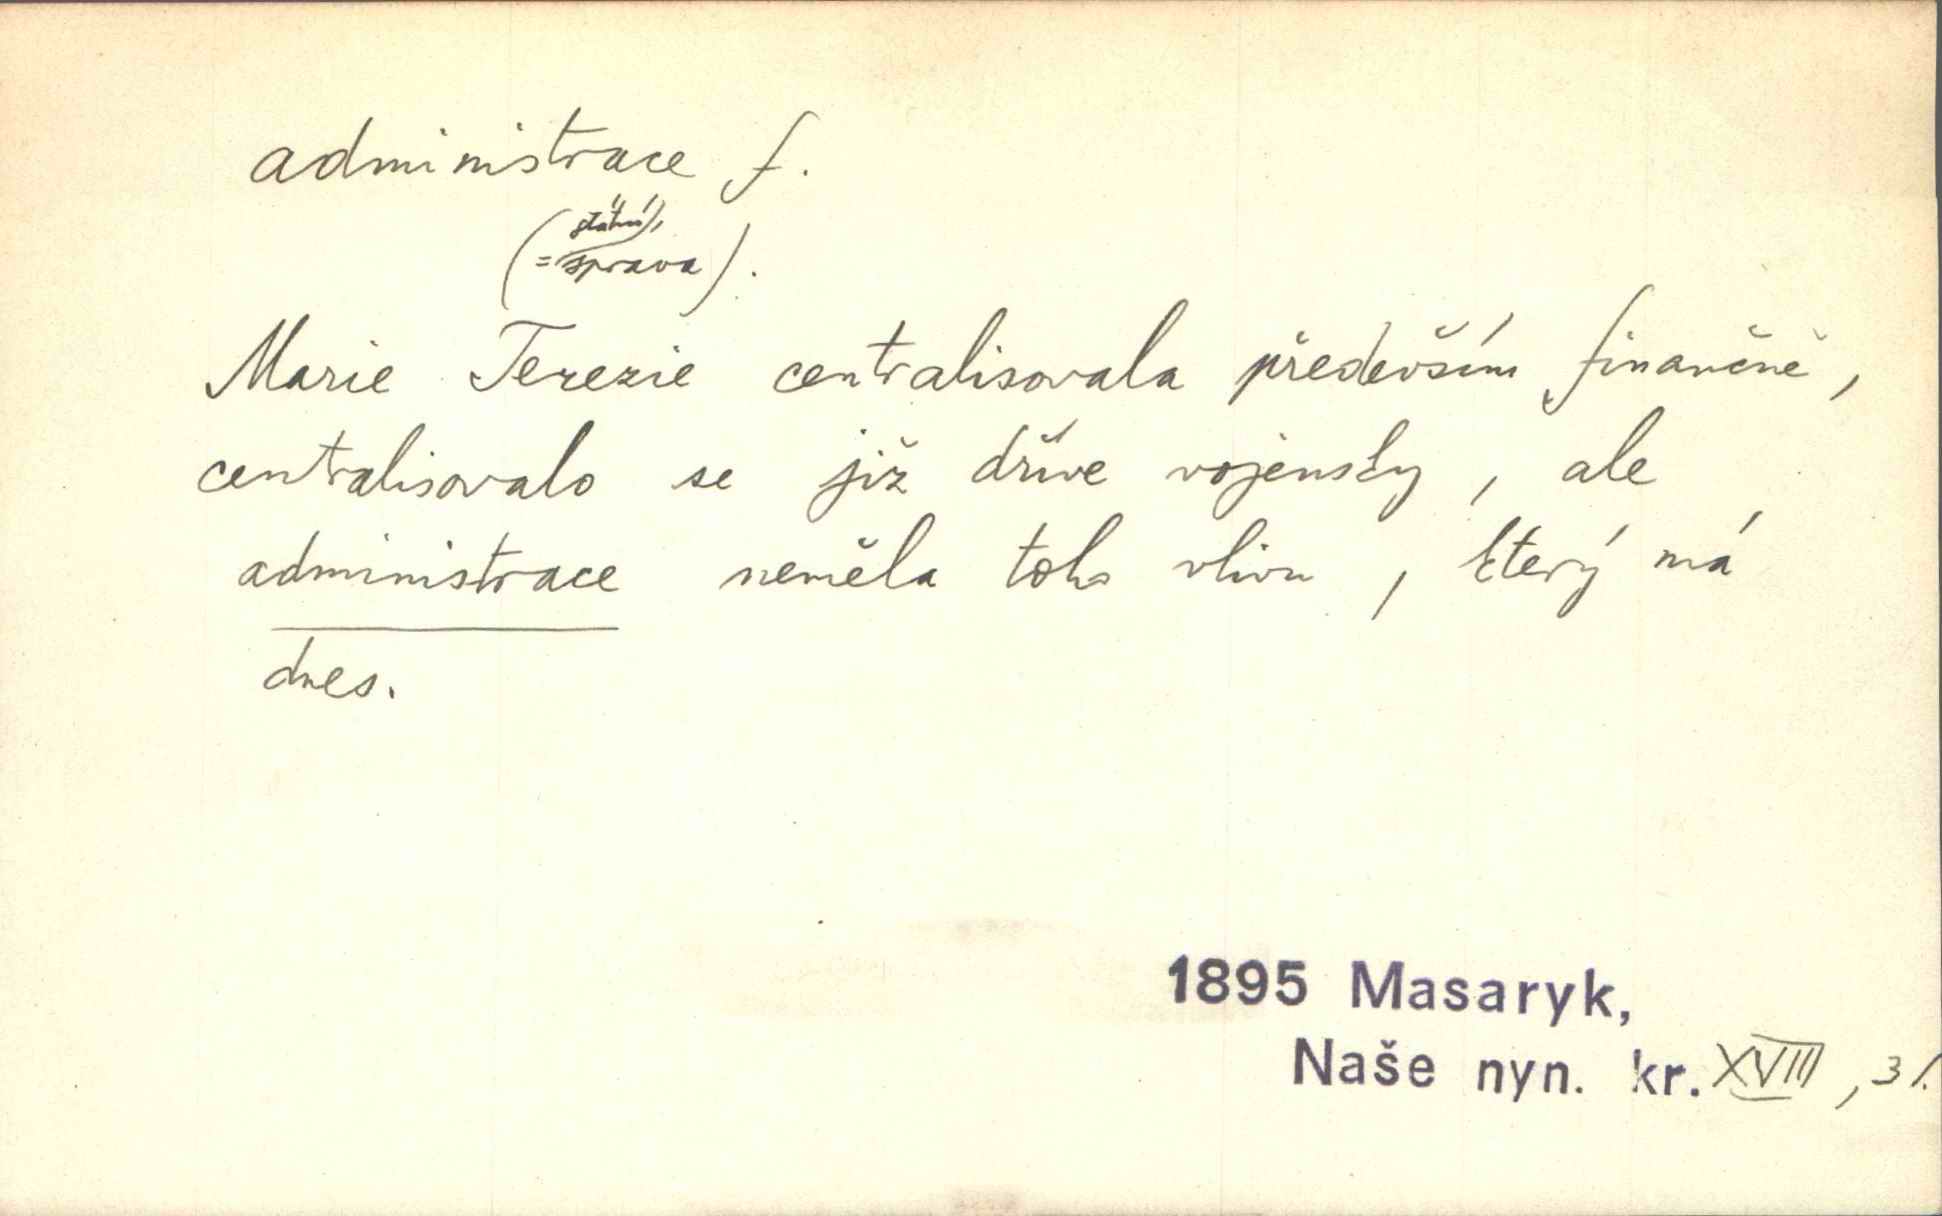 administrace f.
státní
(= správa).
Marie Terezie centralisovala především finančně,
centralisovalo se již dříve vojensky, ale
administrace neměla toho vlivu, který má
dnes.
1895 Masaryk,
Naše nyn. kr. XVIII, 31.